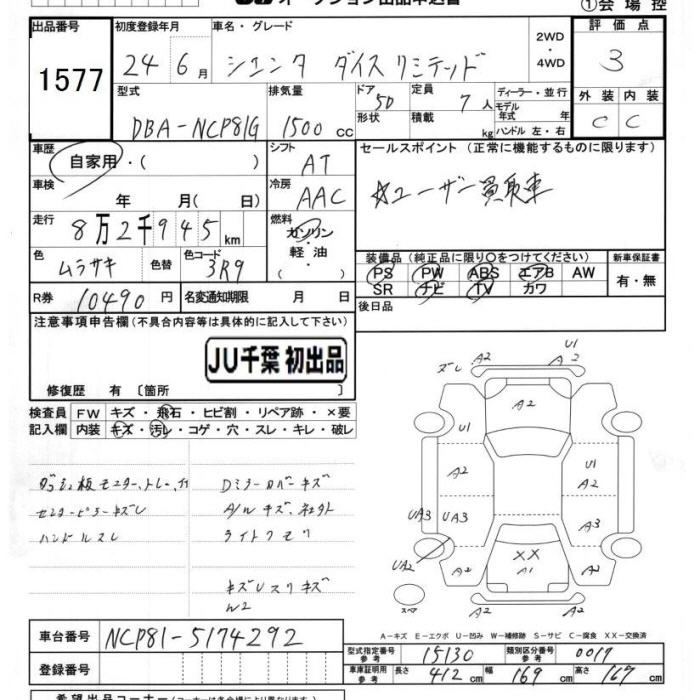 ①会場控
出品番号
1577
初度登録年月
24 6月
車名・グレード
シエンタ ダイスリミテッド
2WD
・
4WD
評価点
3
型式
DBA-NCP81G
排気量
1500 cc
ドア
5D
形状
定員
7人
積載
kg
ディーラー・並行
モデル
年式 年
ハンドル 左・右
外装 内装
C C
車歴
自家用・( )
シフト
AT
セールスポイント (正常に機能するものに限ります)
☆ユーザー買取車
車検
年 月( 日)
冷房
AAC
走行
8万2千945km
燃料
ガソリン
・
軽油
色
ムラサキ
色替
色コード
3R9
装備品 (純正品に限り○をつけてください)
新車保証書
PS PW ABS エアB AW
SR ナビ TV カワ
有・無
R券
10490円
名変通知期限 月 日
後日品
注意事項申告欄(不具合内容等は具体的に記入して下さい)
JU千葉 初出品
修復歴 有〔箇所 〕
検査員 FW キズ・飛石・ヒビ割・リペア跡・×要
記入欄 内装 キズ・汚レ・コゲ・穴・スレ・キレ・破レ
センターピラーキズレ
ハンドルスレ
Dミラーカバーキズ
ライトクモリ
キズレスリキズ
W2
ズレ A2 A2 U1
A2
U1 U1
A2 A2
UA3 UA3 A3
UA2 A2 XX A1 A2
スペア A2 A2
A-キズ E-エクボ U-凹み W-補修跡 S-サビ C-腐食 XX-交換済
車台番号
NCP81-5174292
登録番号
型式指定番号
参考
15130
類別区分番号
参考
0017
車庫証明用
参考
長さ 412cm 幅 169cm 高さ 167cm